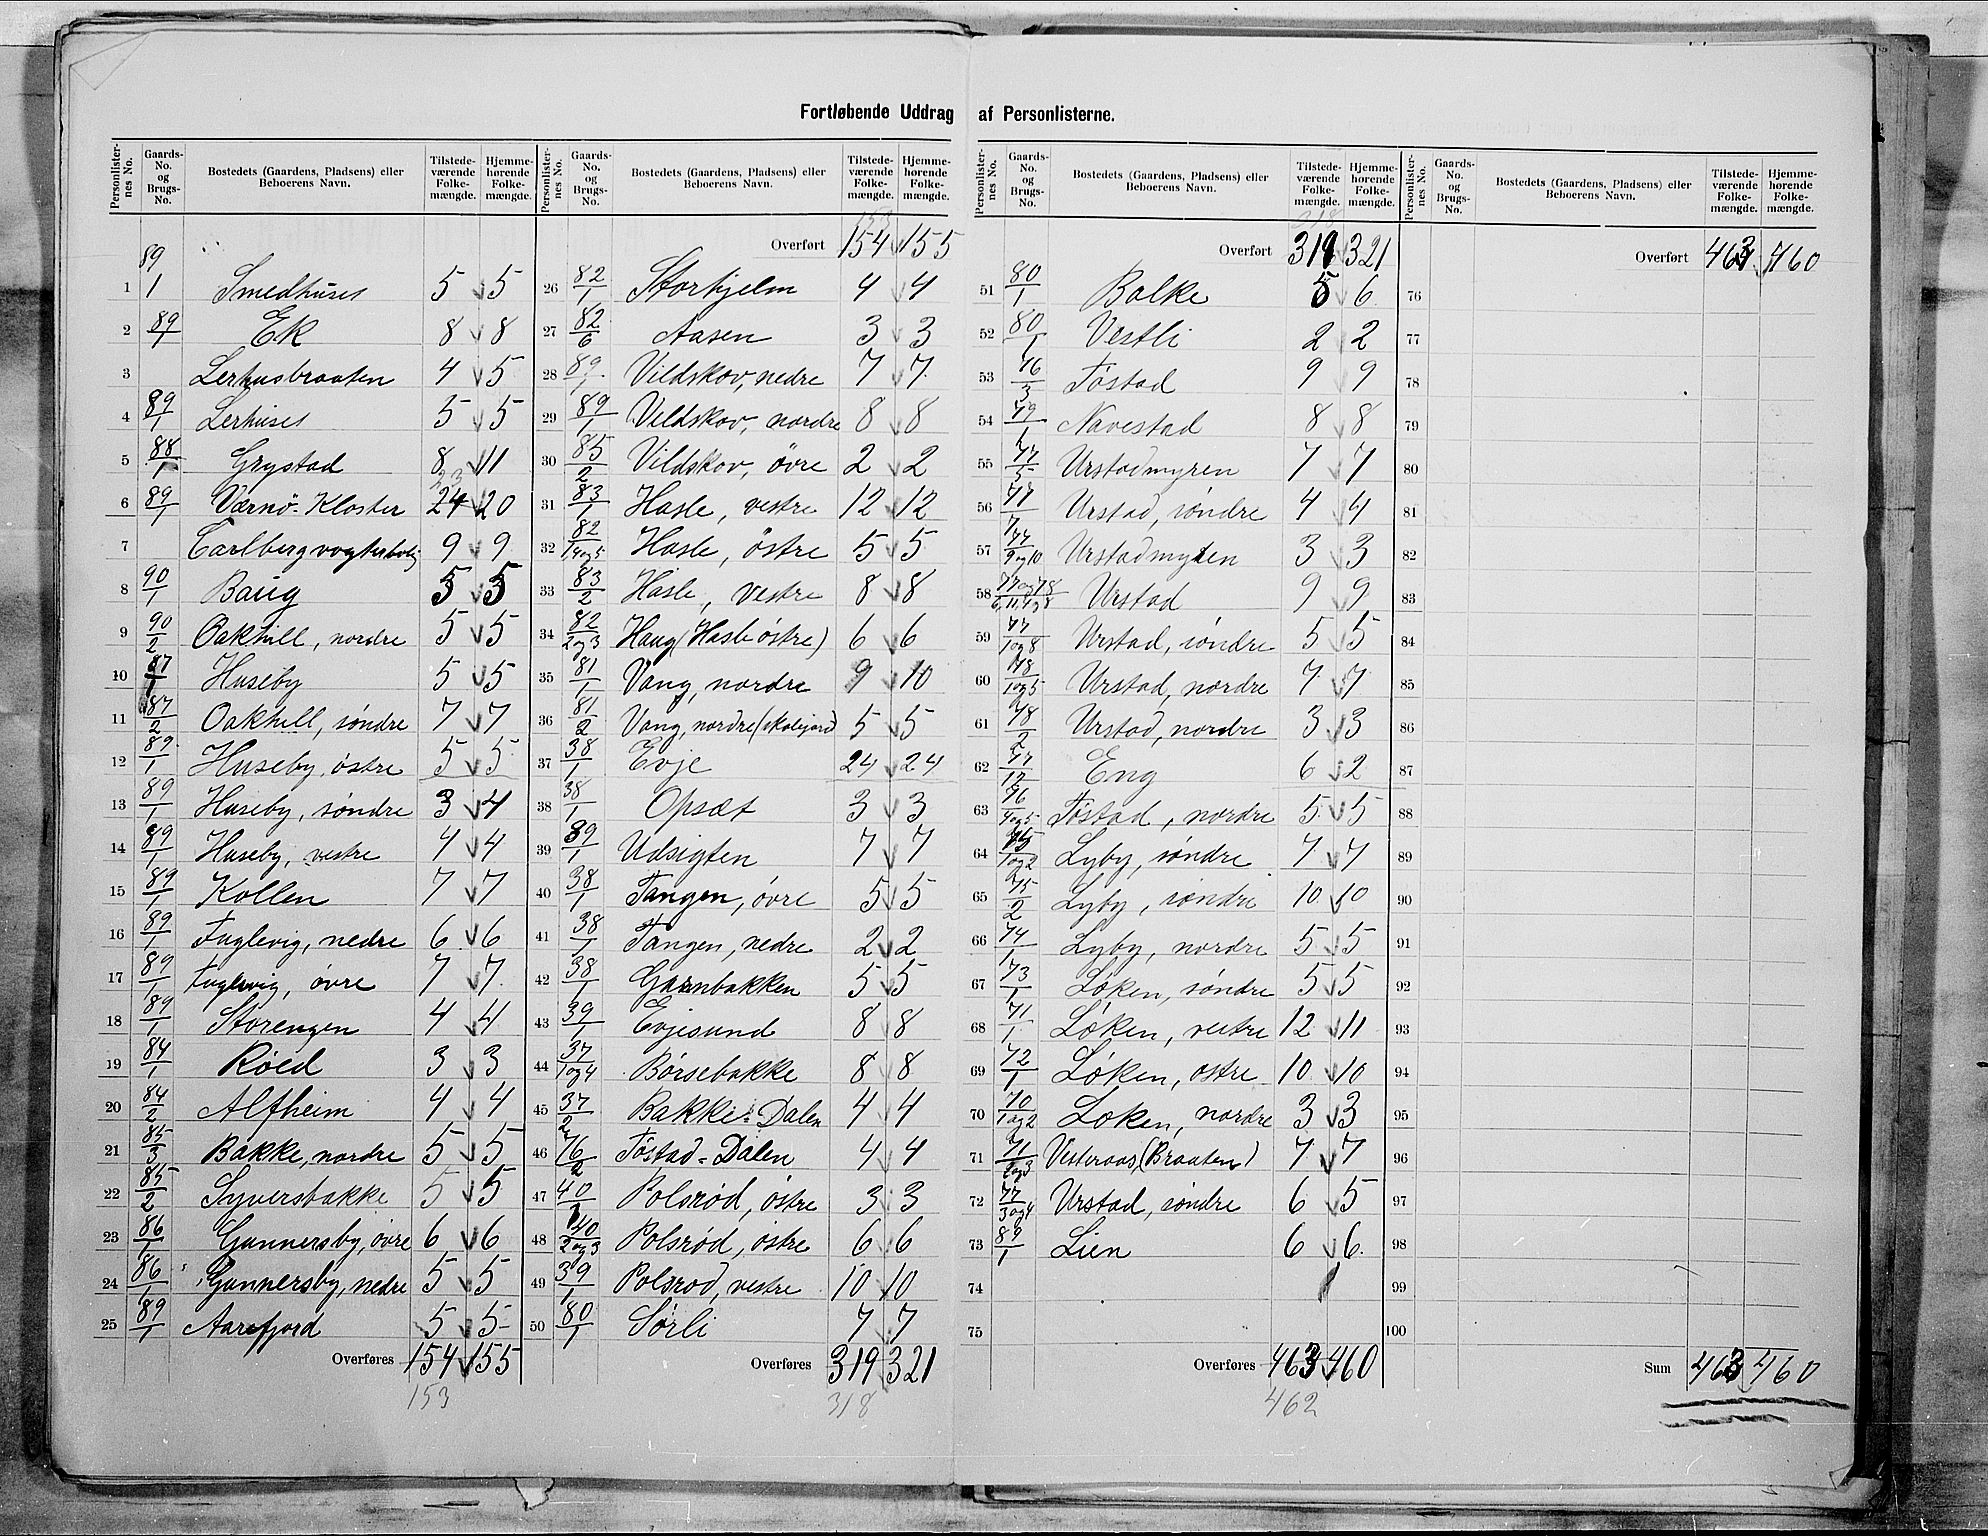 Fortløbende Uddrag af Personlisterne.
Personlister-nes No. Gaards-No. og Brugs-No. Bostedets (Gaardens, Pladsens) eller Beboerens Navn. Tilstede-værende Folke-mængde. Hjemme-hørende Folke-mængde.
1 89/1 Smedhuset 5 5
2 89/1 Ek 8 8
3 Lerhusbraaten 4 5
4 89/1 Lerhuset 5 5
5 88/1 Grystad 8 11
6 89/1 Værnø-Kloster 24 23 20
7 Carlberg vogterbolig 9 9
8 90/1 Baug 5 5
9 90/2 Oakhill, nordre 5 5
10 87/1 Huseby 5 5
11 87/2 Oakhill, søndre 7 7
12 89/1 Huseby, østre 5 5
13 89/1 Huseby, søndre 3 4
14 89/1 Huseby, vestre 4 4
15 89/1 Kollen 7 7
16 89/1 Fuglevig, nedre 6 6
17 89/1 Fuglevig, øvre 7 7
18 89/1 Storengen 4 4
19 84/1 Røed 3 3
20 84/2 Alfheim 4 4
21 85/3 Bakke, nordre 5 5
22 85/2 Syversbakke 5 5
23 86/1 Gunnersby, øvre 6 6
24 86/1 Gunnersby, nedre 5 5
25 89/1 Aarefjord 5 5
Overføres 154 155
153
Personlister-nes No. Gaards-No. og Brugs-No. Bostedets (Gaardens, Pladsens) eller Beboerens Navn. Tilstede-værende Folke-mængde. Hjemme-hørende Folke-mængde.
153
Overført 154 155
26 82/1 Storhjelm 4 4
27 82/6 Aasen 3 3
28 89/1 Vildskov, nedre 7 7
29 89/1 Vildskov, nordre 8 8
30 85/2 Vildskov, øvre 2 2
31 83/1 Hasle, vestre 12 12
32 82/1,4og5 Hasle, östre 5 5
33 83/2 Hasle, vestre 8 8
34 82/2og3 Haug (Hasle østre) 6 6
35 81/1 Vang, nordre 9 10
36 81/2 Vang, nordre (skolejord) 5 5
37 38/1 Evje 24 24
38 38/1 Opsæt 3 3
39 89/1 Udsigten 7 7
40 38/1 Tangen, øvre 5 5
41 38/1 Tangen, nedre 2 2
42 38/1 Garnbakken 5 5
43 39/1 Evjesund 8 8
44 37/1og4 Børsebakke 8 8
45 37/2 Bakke-Dalen 4 4
46 76/2 Tøstad-Dalen 4 4
47 40/1 Polsrød, østre 3 3
48 40/2og3 Polsrød, østre 6 6
49 39/1 Polsrød, vestre 10 10
50 80/1 Sørli 7 7
Overføres 319 321
318
Personlister-nes No. Gaards-No. og Brugs-No. Bostedets (Gaardens, Pladsens) eller Beboerens Navn. Tilstede-værende Folke-mængde. Hjemme-hørende Folke-mængde.
318
Overført 319 321
51 80/1 Bolke 5 6
52 80/1 Vestli 2 2
53 76/3 Tøstad 9 9
54 79/1 Navestad 8 8
55 77/5 Urstadmyren 7 7
56 77/7 Urstad, søndre 4 4
57 77/9og10 Urstadmyren 3 3
58 77og78/6,11,4og8 Urstad 9 9
59 77/1og8 Urstad, søndre 5 5
60 78/1og5 Urstad, nordre 7 7
61 78/2 Urstad, nordre 3 3
62 77/12 Eng 6 2
63 76/4og5 Tøstad, nordre 5 5
64 75/1og2 Lyby, søndre 7 7
65 75/2 Lyby, søndre 10 10
66 74/1 Lyby, nordre 5 5
67 73/1 Løken, søndre 5 5
68 71/1 Løken, vestre 12 11
69 72/1 Løken, østre 10 10
70 70/1og2 Løken, nordre 3 3
71 71/2og3 Vesteraas, (Braaten) 7 7
72 77/3og4 Urstad, søndre 6 5
73 89/1 Lien 6 6
74
75
Overføres 463 460
462
Personlister-nes No. Gaards-No. og Brugs-No. Bostedets (Gaardens, Pladsens) eller Beboerens Navn. Tilstede-værende Folke-mængde. Hjemme-hørende Folke-mængde.
Overført 463 460
76
77
78
79
80
81
82
83
84
85
86
87
88
89
90
91
92
93
94
95
96
97
98
99
100
Sum 463 460